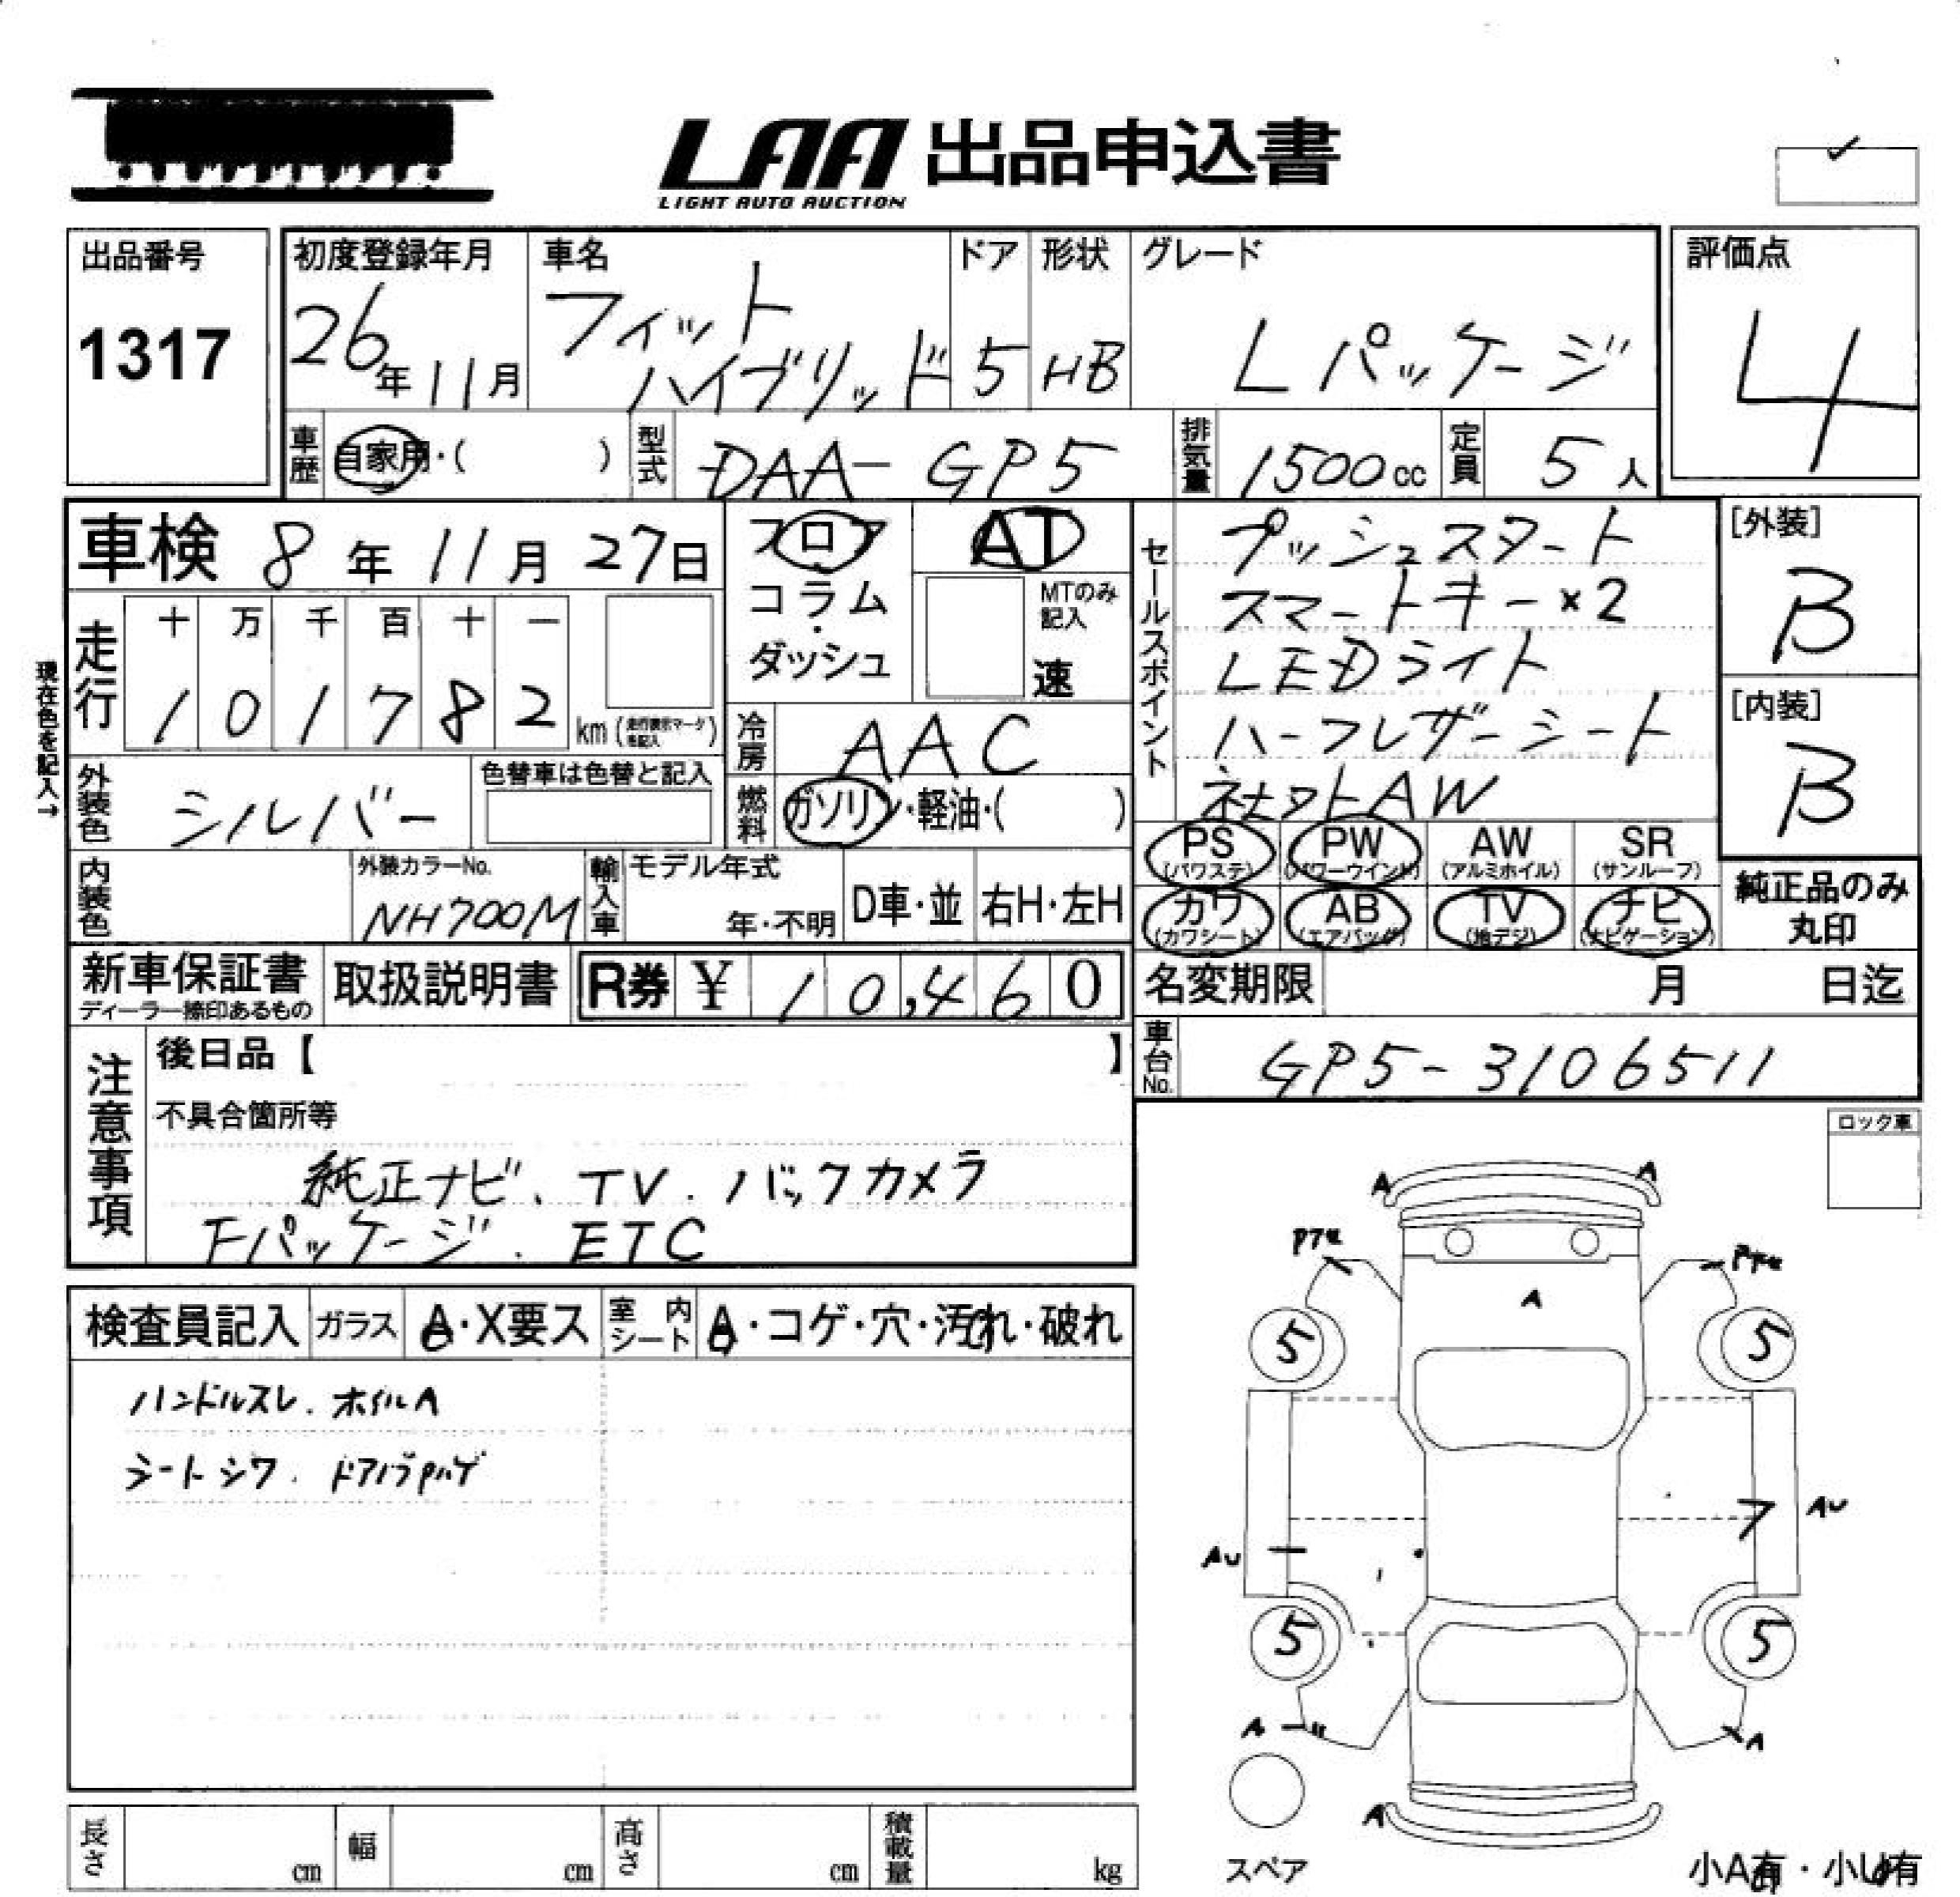 LAA 出品申込書
LIGHT AUTO AUCTION
出品番号
1317
初度登録年月
26年11月
車名
フィット
ハイブリッド
ドア
5
形状
HB
グレード
Lパッケージ
評価点
4
車歴 自家用・( )
型式 DAA-GP5
排気量 1500cc
定員 5人
車検 8年11月27日
フロア
コラム
・
ダッシュ
AT
MTのみ
記入
速
現在色を記入→
走行
十 万 千 百 十 一
1 0 1 7 8 2 km (走行表示マークを記入)
冷房 AAC
外装色 シルバー
色替車は色替と記入
燃料 ガソリン・軽油・( )
セールスポイント
プッシュスタート
スマートキー×2
LEDライト
ハーフレザーシート
社外AW
[外装]
B
[内装]
B
PS (パワステ)
PW (パワーウインド)
AW (アルミホイル)
SR (サンルーフ)
カワ (カワシート)
AB (エアバッグ)
TV (地デジ)
ナビ (ナビゲーション)
純正品のみ
丸印
内装色
外装カラーNo.
NH700M
輸入車
モデル年式
年・不明
D車・並
右H・左H
新車保証書
ディーラー捺印あるもの
取扱説明書
R券 ¥ 10,460
名変期限 月 日迄
車台No. GP5-3106511
注意事項
後日品【 】
不具合箇所等
純正ナビ、TV.バックカメラ
Fパッケージ. ETC
ロック車
検査員記入
ガラス A・X要ス
室内シート A・コゲ・穴・汚れ・破れ
ハンドルスレ. ホイルA
シートシワ. ドアバラPハゲ
A A
A
5 5
AU 7 AU
5 5
A A
A
スペア
小A有・小U有
長さ cm
幅 cm
高さ cm
積載量 kg